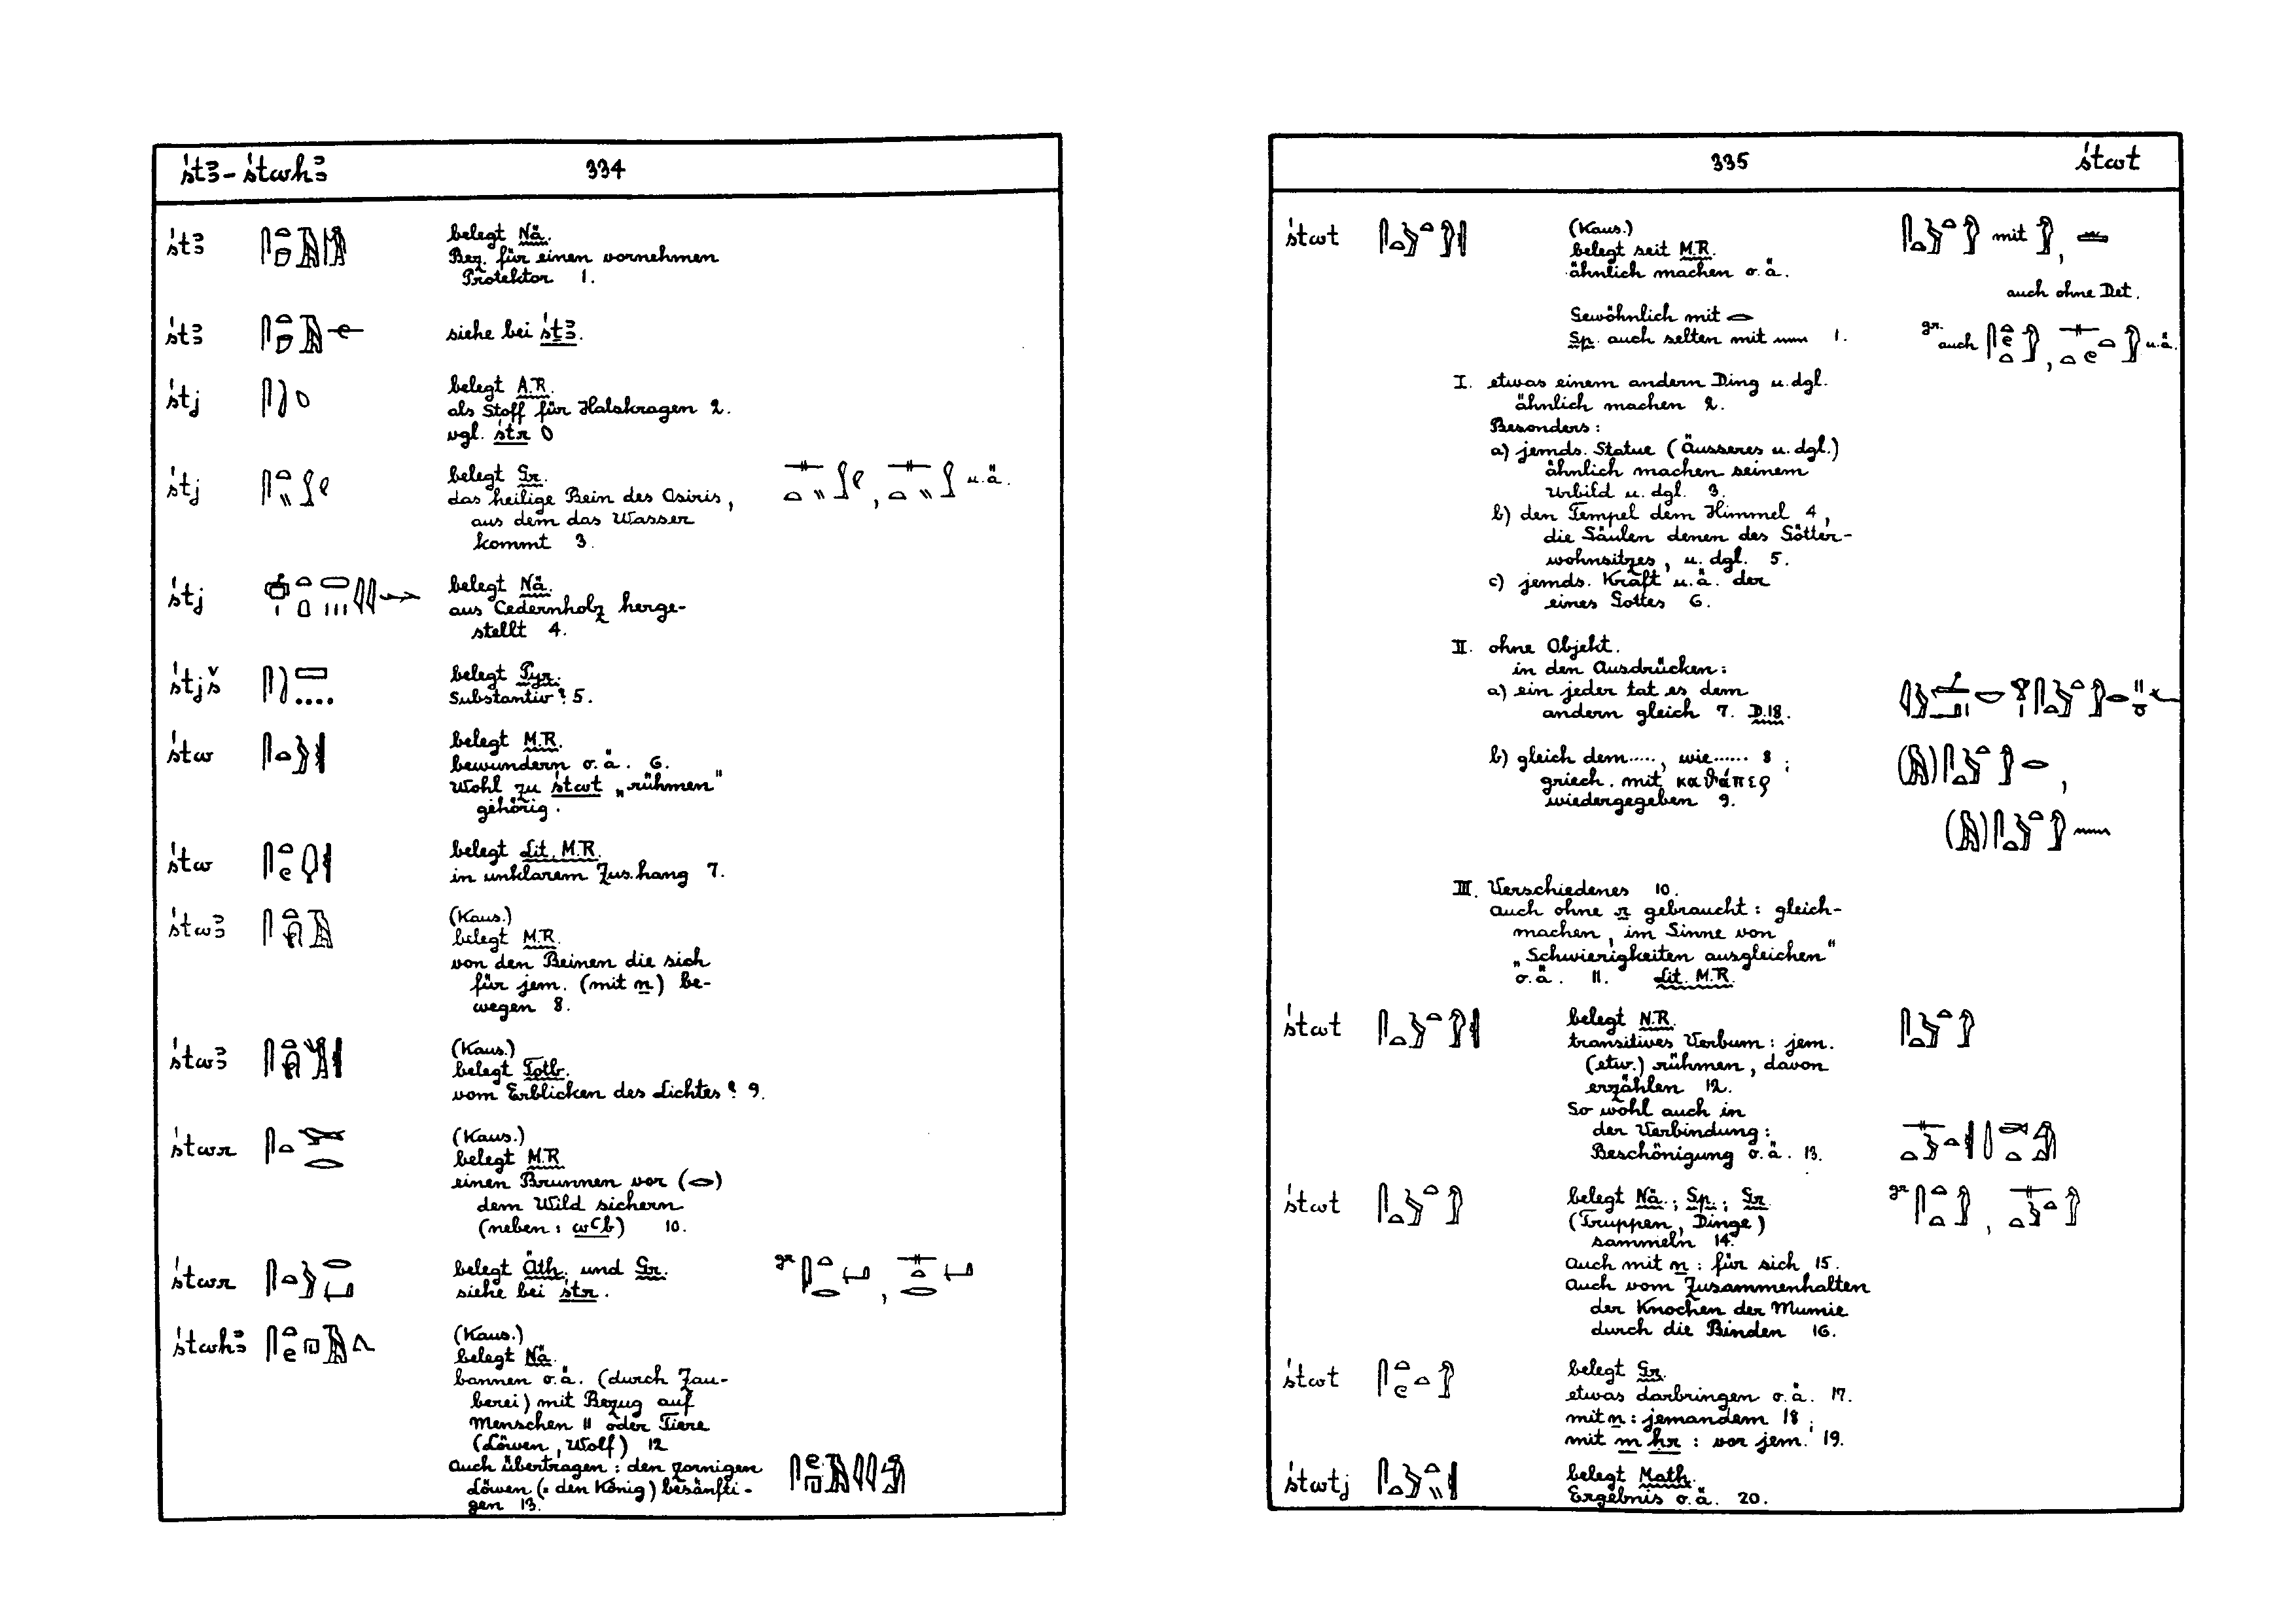 śtꜣ-śtwhꜣ 334
śtꜣ belegt Nä.
Bez. für einen vornehmen
Protektor 1.
śtꜣ siehe bei śṯꜣ.
śtj belegt A.R.
als Stoff für Halskragen 2.
vgl. śtr
śtj belegt Gr.
das heilige Bein des Osiris, , u.ä.
aus dem das Wasser
kommt 3.
śtj belegt Nä.
aus Cedernholz herge-
stellt 4.
śtjš belegt Pyr.
Substantiv? 5.
śtw belegt M.R.
bewundern o.ä. 6.
Wohl zu śtwt „rühmen"
gehörig.
śtw belegt Lit. M.R.
in unklarem Zus.hang 7.
śtwꜣ (Kaus.)
belegt M.R.
von den Beinen die sich
für jem. (mit n) be-
wegen 8.
śtwꜣ (Kaus.)
belegt Totb.
vom Erblicken des Lichtes? 9.
śtwr (Kaus.)
belegt M.R.
einen Brunnen vor (𓂋)
dem Wild sichern
(neben: wꜥb) 10.
śtwr belegt Äth. und Gr. gr. ,
siehe bei śtr.
śtwhꜣ (Kaus.)
belegt Nä.
bannen o.ä. (durch Zau-
berei) mit Bezug auf
Menschen 11 oder Tiere
(Löwen, Wolf) 12
Auch übertragen: den zornigen
Löwen (= den König) besänfti-
gen 13.
335 śtwt
śtwt (Kaus.)
belegt seit M.R. mit ,
ähnlich machen o.ä.
auch ohne Det.
Gewöhnlich mit 𓂋
Sp. auch selten mit 𓈖 1. gr. auch , u.ä.
I. etwas einem andern Ding u. dgl.
ähnlich machen 2.
Besonders:
a) jemds. Statue (Äusseres u. dgl.)
ähnlich machen seinem
Urbild u. dgl. 3.
b) den Tempel dem Himmel 4,
die Säulen denen des Götter-
wohnsitzes, u. dgl. 5.
c) jemds. Kraft u.ä. der
eines Gottes 6.
II. ohne Objekt.
in den Ausdrücken:
a) ein jeder tat es dem
andern gleich 7. D.18.
b) gleich dem....., wie...... 8;
griech. mit καθάπερ
wiedergegeben 9.
III. Verschiedenes 10.
Auch ohne r gebraucht: gleich-
machen, im Sinne von
„Schwierigkeiten ausgleichen"
o.ä. 11. Lit. M.R.
śtwt belegt N.R.
transitives Verbum: jem.
(etw.) rühmen, davon
erzählen 12.
So wohl auch in
der Verbindung:
Beschönigung o.ä. 13.
śtwt belegt Nä.; Sp.; Gr. gr. ,
(Truppen, Dinge)
sammeln 14.
Auch mit n: für sich 15.
Auch vom Zusammenhalten
der Knochen der Mumie
durch die Binden 16.
śtwt belegt Gr.
etwas darbringen o.ä. 17.
mit n: jemandem 18;
mit m ḥr: vor jem. 19.
śtwtj belegt Math.
Ergebnis o.ä. 20.